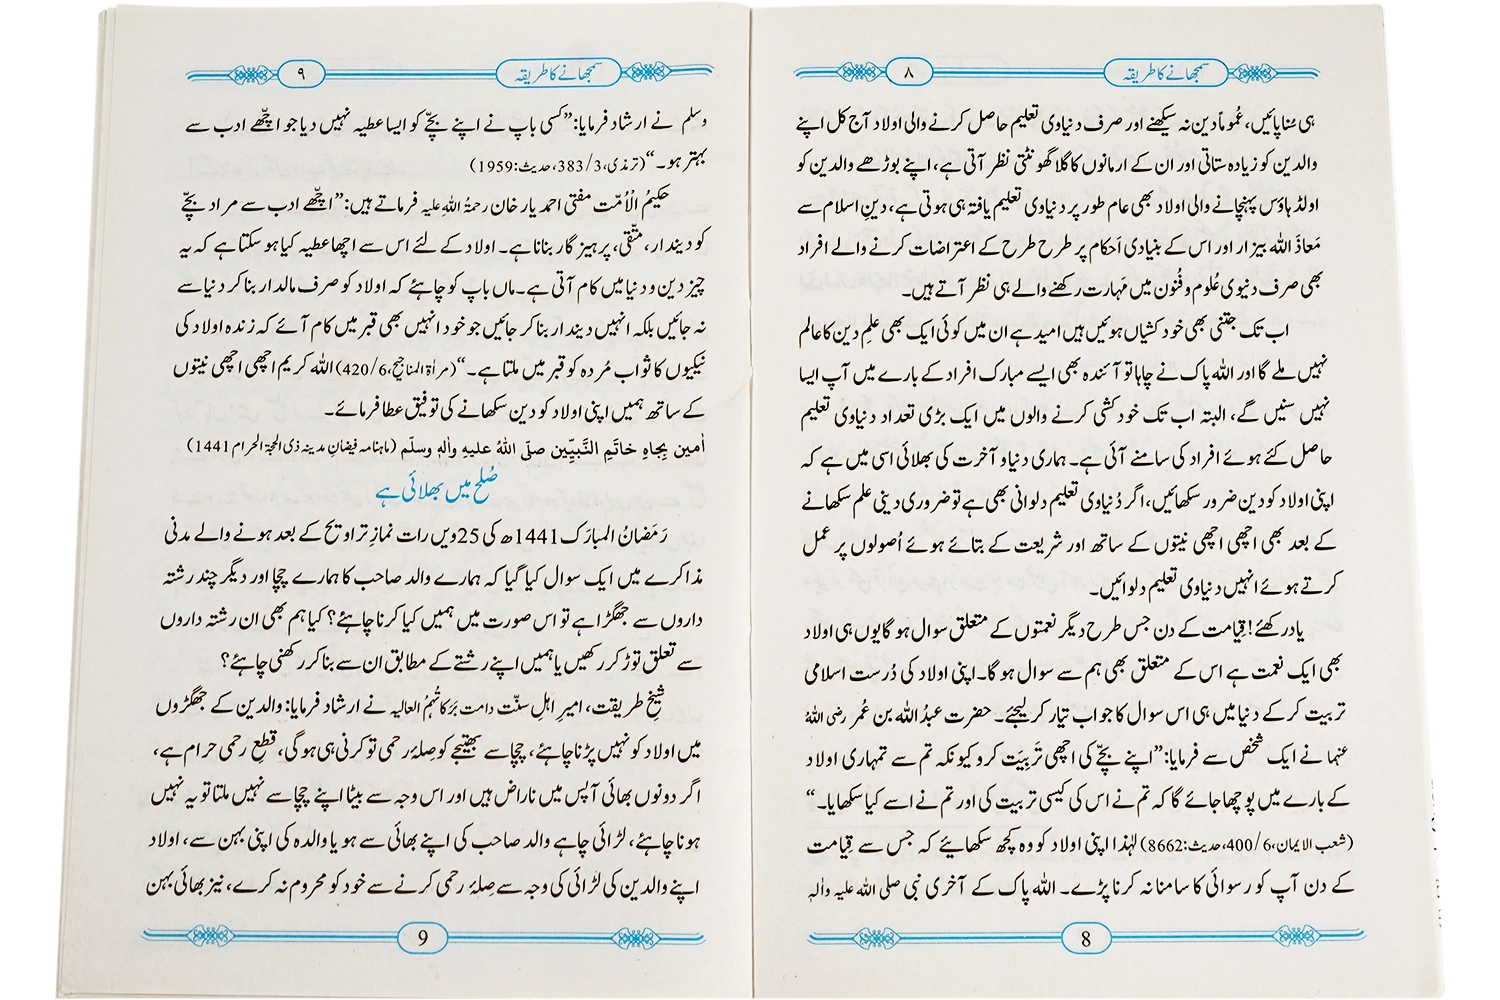 سمجھانے کا طریقہ
٨
ہی سُنا پائیں، عُموماً دین نہ سیکھنے اور صرف دنیاوی تعلیم حاصل کرنے والی اولاد آج کل اپنے
والدین کو زیادہ ستاتی اور ان کے ارمانوں کا گلا گھونٹتی نظر آتی ہے، اپنے بوڑھے والدین کو
اولڈ ہاؤس پہنچانے والی اولاد بھی عام طور پر دنیاوی تعلیم یافتہ ہی ہوتی ہے، دینِ اسلام سے
مَعاذَ اللہ بیزار اور اس کے بنیادی اَحکام پر طرح طرح کے اعتراضات کرنے والے افراد
بھی صرف دنیوی عُلوم و فُنون میں مَہارت رکھنے والے ہی نظر آتے ہیں۔
اب تک جتنی بھی خود کشیاں ہوئیں ہیں امید ہے ان میں کوئی ایک بھی علمِ دین کا عالم
نہیں ملے گا اور اللہ پاک نے چاہا تو آئندہ بھی ایسے مبارک افراد کے بارے میں آپ ایسا
نہیں سنیں گے، البتہ اب تک خود کشی کرنے والوں میں ایک بڑی تعداد دنیاوی تعلیم
حاصل کئے ہوئے افراد کی سامنے آئی ہے۔ ہماری دنیا و آخرت کی بھلائی اسی میں ہے کہ
اپنی اولاد کو دین ضرور سکھائیں، اگر دُنیاوی تعلیم دلوانی بھی ہے تو ضروری دینی علم سکھانے
کے بعد بھی اچھی اچھی نیتوں کے ساتھ اور شریعت کے بتائے ہوئے اُصولوں پر عمل
کرتے ہوئے انہیں دنیاوی تعلیم دلوائیں۔
یاد رکھئے! قِیامت کے دن جس طرح دیگر نعمتوں کے متعلق سوال ہو گا یوں ہی اولاد
بھی ایک نعمت ہے اس کے متعلق بھی ہم سے سوال ہو گا۔ اپنی اولاد کی دُرست اسلامی
تربیت کر کے دنیا میں ہی اس سوال کا جواب تیار کر لیجئے۔ حضرت عبدُ اللہ بن عُمر رضی اللہُ
عنہما نے ایک شخص سے فرمایا:”اپنے بچّے کی اچھی تَربِیَت کرو کیونکہ تم سے تمہاری اولاد
کے بارے میں پوچھا جائے گا کہ تم نے اس کی کیسی تربیت کی اور تم نے اسے کیا سکھایا۔“
(شعب الایمان، 6/400، حدیث:8662) لہٰذا اپنی اولاد کو وہ کچھ سکھائیے کہ جس سے قِیامت
کے دن آپ کو رسوائی کا سامنا نہ کرنا پڑے۔ اللہ پاک کے آخری نبی صلی اللہ علیہ واٰلہٖ
8
سمجھانے کا طریقہ
٩
وسلم نے ارشاد فرمایا:”کسی باپ نے اپنے بچّے کو ایسا عطیہ نہیں دیا جو اچّھے ادب سے
بہتر ہو۔“ (ترمذی، 3/383، حدیث:1959)
حکیمُ الْاُمّت مفتی احمد یار خان رحمۃُ اللہِ علیہ فرماتے ہیں:”اچّھے ادب سے مراد بچّے
کو دیندار، متّقی، پرہیز گار بنانا ہے۔ اولاد کے لئے اس سے اچھا عطیہ کیا ہو سکتا ہے کہ یہ
چیز دین و دنیا میں کام آتی ہے۔ ماں باپ کو چاہئے کہ اولاد کو صرف مالدار بنا کر دنیا سے
نہ جائیں بلکہ انہیں دیندار بنا کر جائیں جو خود انہیں بھی قبر میں کام آئے کہ زندہ اولاد کی
نیکیوں کا ثواب مُردہ کو قبر میں ملتا ہے۔“ (مراٰۃ المناجیح، 6/420) اللہ کریم اچھی اچھی نیتوں
کے ساتھ ہمیں اپنی اولاد کو دین سکھانے کی توفیق عطا فرمائے۔
اٰمین بِجاہِ خاتَمِ النَّبِیِّین صلَّی اللہُ علیهِ واٰلهٖ وسلّم (ماہنامہ فیضانِ مدینہ ذی الحجۃ الحرام 1441)
صُلح میں بھلائی ہے
رَمَضانُ المبارَک 1441ھ کی 25ویں رات نمازِ تراویح کے بعد ہونے والے مدنی
مذاکرے میں ایک سوال کیا گیا کہ ہمارے والد صاحب کا ہمارے چچا اور دیگر چند رشتہ
داروں سے جھگڑا ہے تو اس صورت میں ہمیں کیا کرنا چاہئے؟ کیا ہم بھی ان رشتہ داروں
سے تعلق توڑ کر رکھیں یا ہمیں اپنے رشتے کے مطابق ان سے بنا کر رکھنی چاہئے؟
شیخِ طریقت، امیرِ اہلِ سنّت دامت بَرَکاتُہُمُ العالیہ نے ارشاد فرمایا: والدین کے جھگڑوں
میں اولاد کو نہیں پڑنا چاہئے، چچا سے بھتیجے کو صلۂ رحمی تو کرنی ہی ہو گی، قطعِ رحمی حرام ہے،
اگر دونوں بھائی آپس میں ناراض ہیں اور اس وجہ سے بیٹا اپنے چچا سے نہیں ملتا تو یہ نہیں
ہونا چاہئے، لڑائی چاہے والد صاحب کی اپنے بھائی سے ہو یا والدہ کی اپنی بہن سے، اولاد
اپنے والدین کی لڑائی کی وجہ سے صلۂ رحمی کرنے سے خود کو محروم نہ کرے، نیز بھائی بہن
9